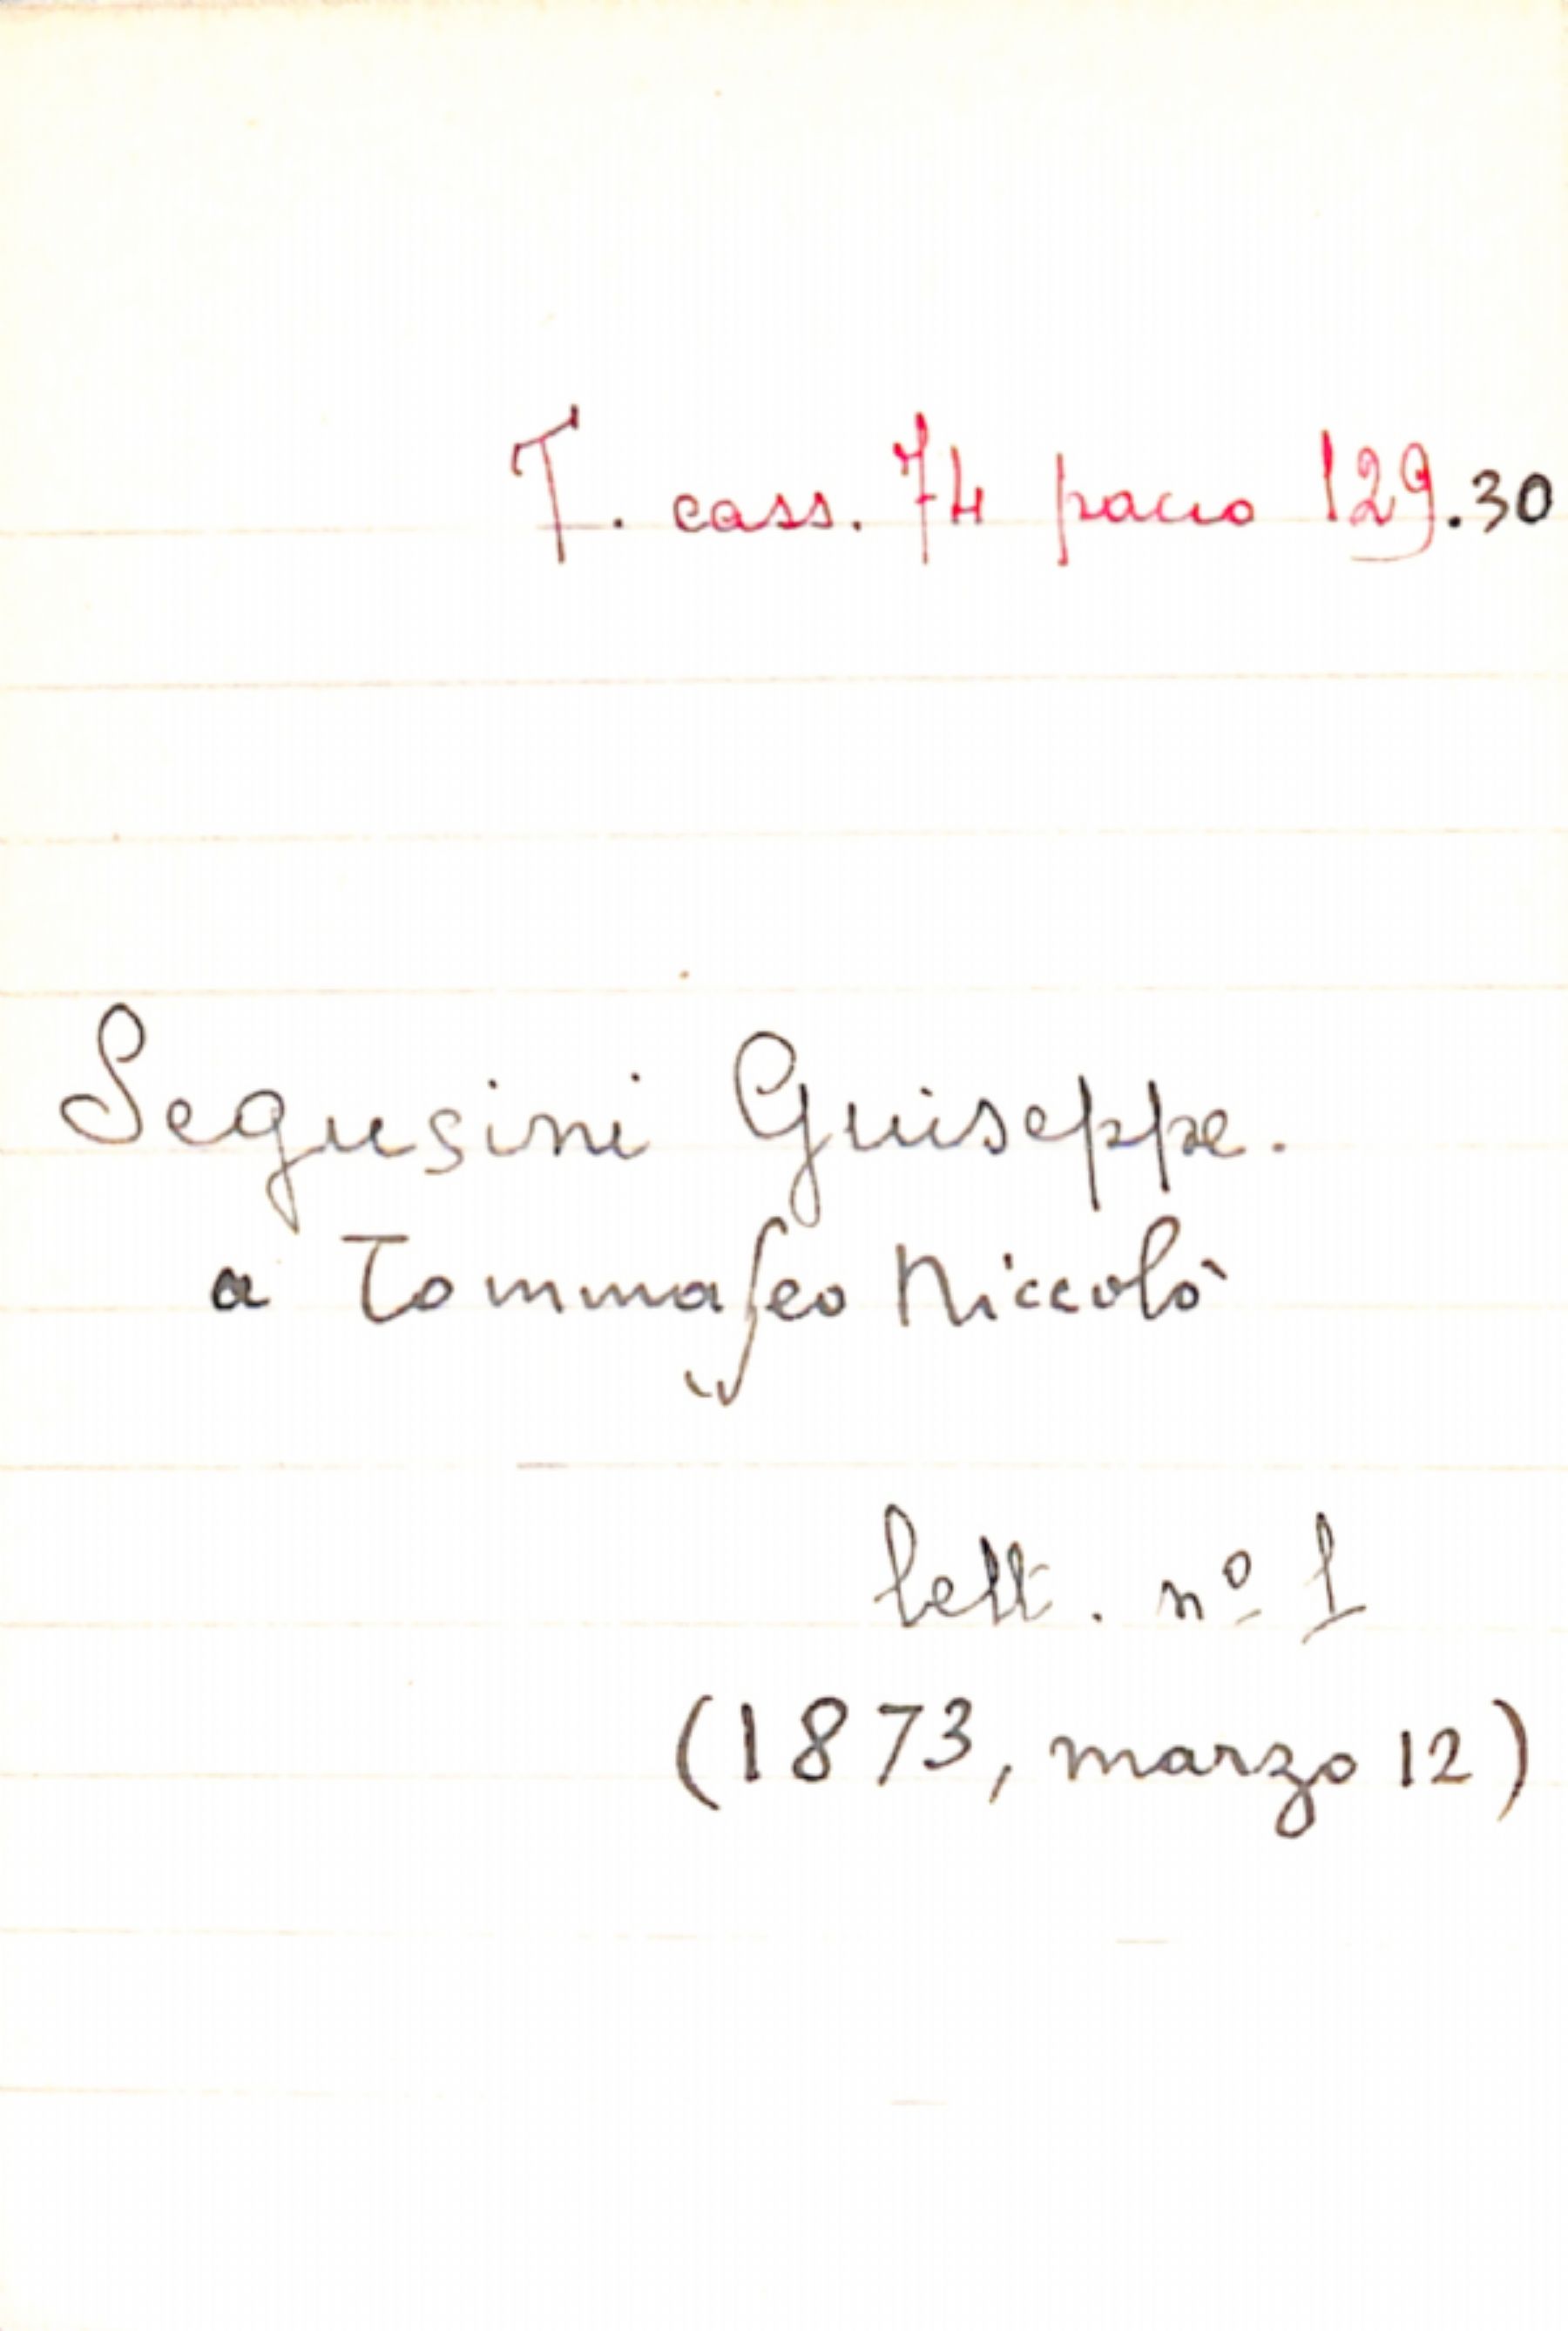 T. cass. 74 pacco 129.30
Segusini Giuseppe.
a Tommaseo Niccolò
lett. nº 1
(1873, marzo 12)